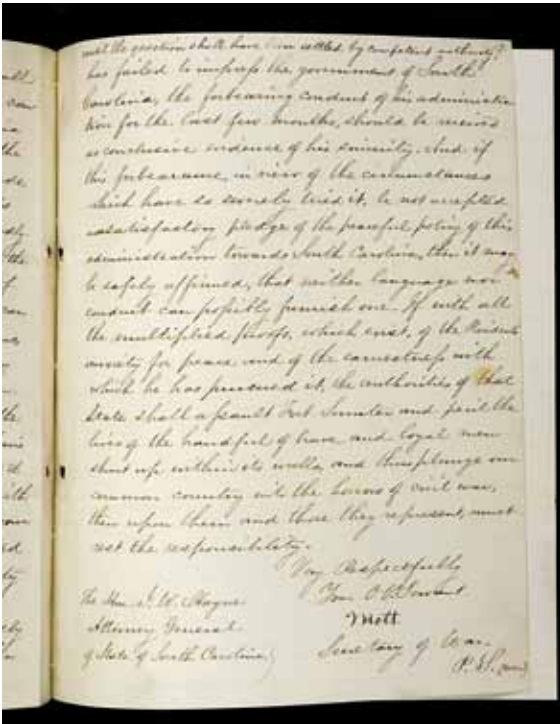 until the question shall have been settled by competent authority,"
has failed to impress the government of South
Carolina, the forbearing conduct of his administra-
tion for the last few months, should be received
as conclusive evidence of his sincerity. And if
this forbearance, in view of the circumstances
which have so severely tried it, be not accepted
as a satisfactory pledge of the peaceful policy of this
administration towards South Carolina, then it may
be safely affirmed, that neither language nor
conduct can possibly furnish one. If with all
the multiplied proofs, which exist, of the President's
anxiety for peace, and of the earnestness with
which he has pursued it, the authorities of that
State shall assault Fort Sumter and peril the
lives of the handful of brave and loyal men
shut up within its walls, and thus plunge our
common country into the horrors of civil war,
then upon them and those they represent, must
rest the responsibility.
Very Respectfully
Your Ob. Servant
Holt
Secretary of War.
The Hon. I. W. Hayne
Attorney General
of State of South Carolina
can
the
the